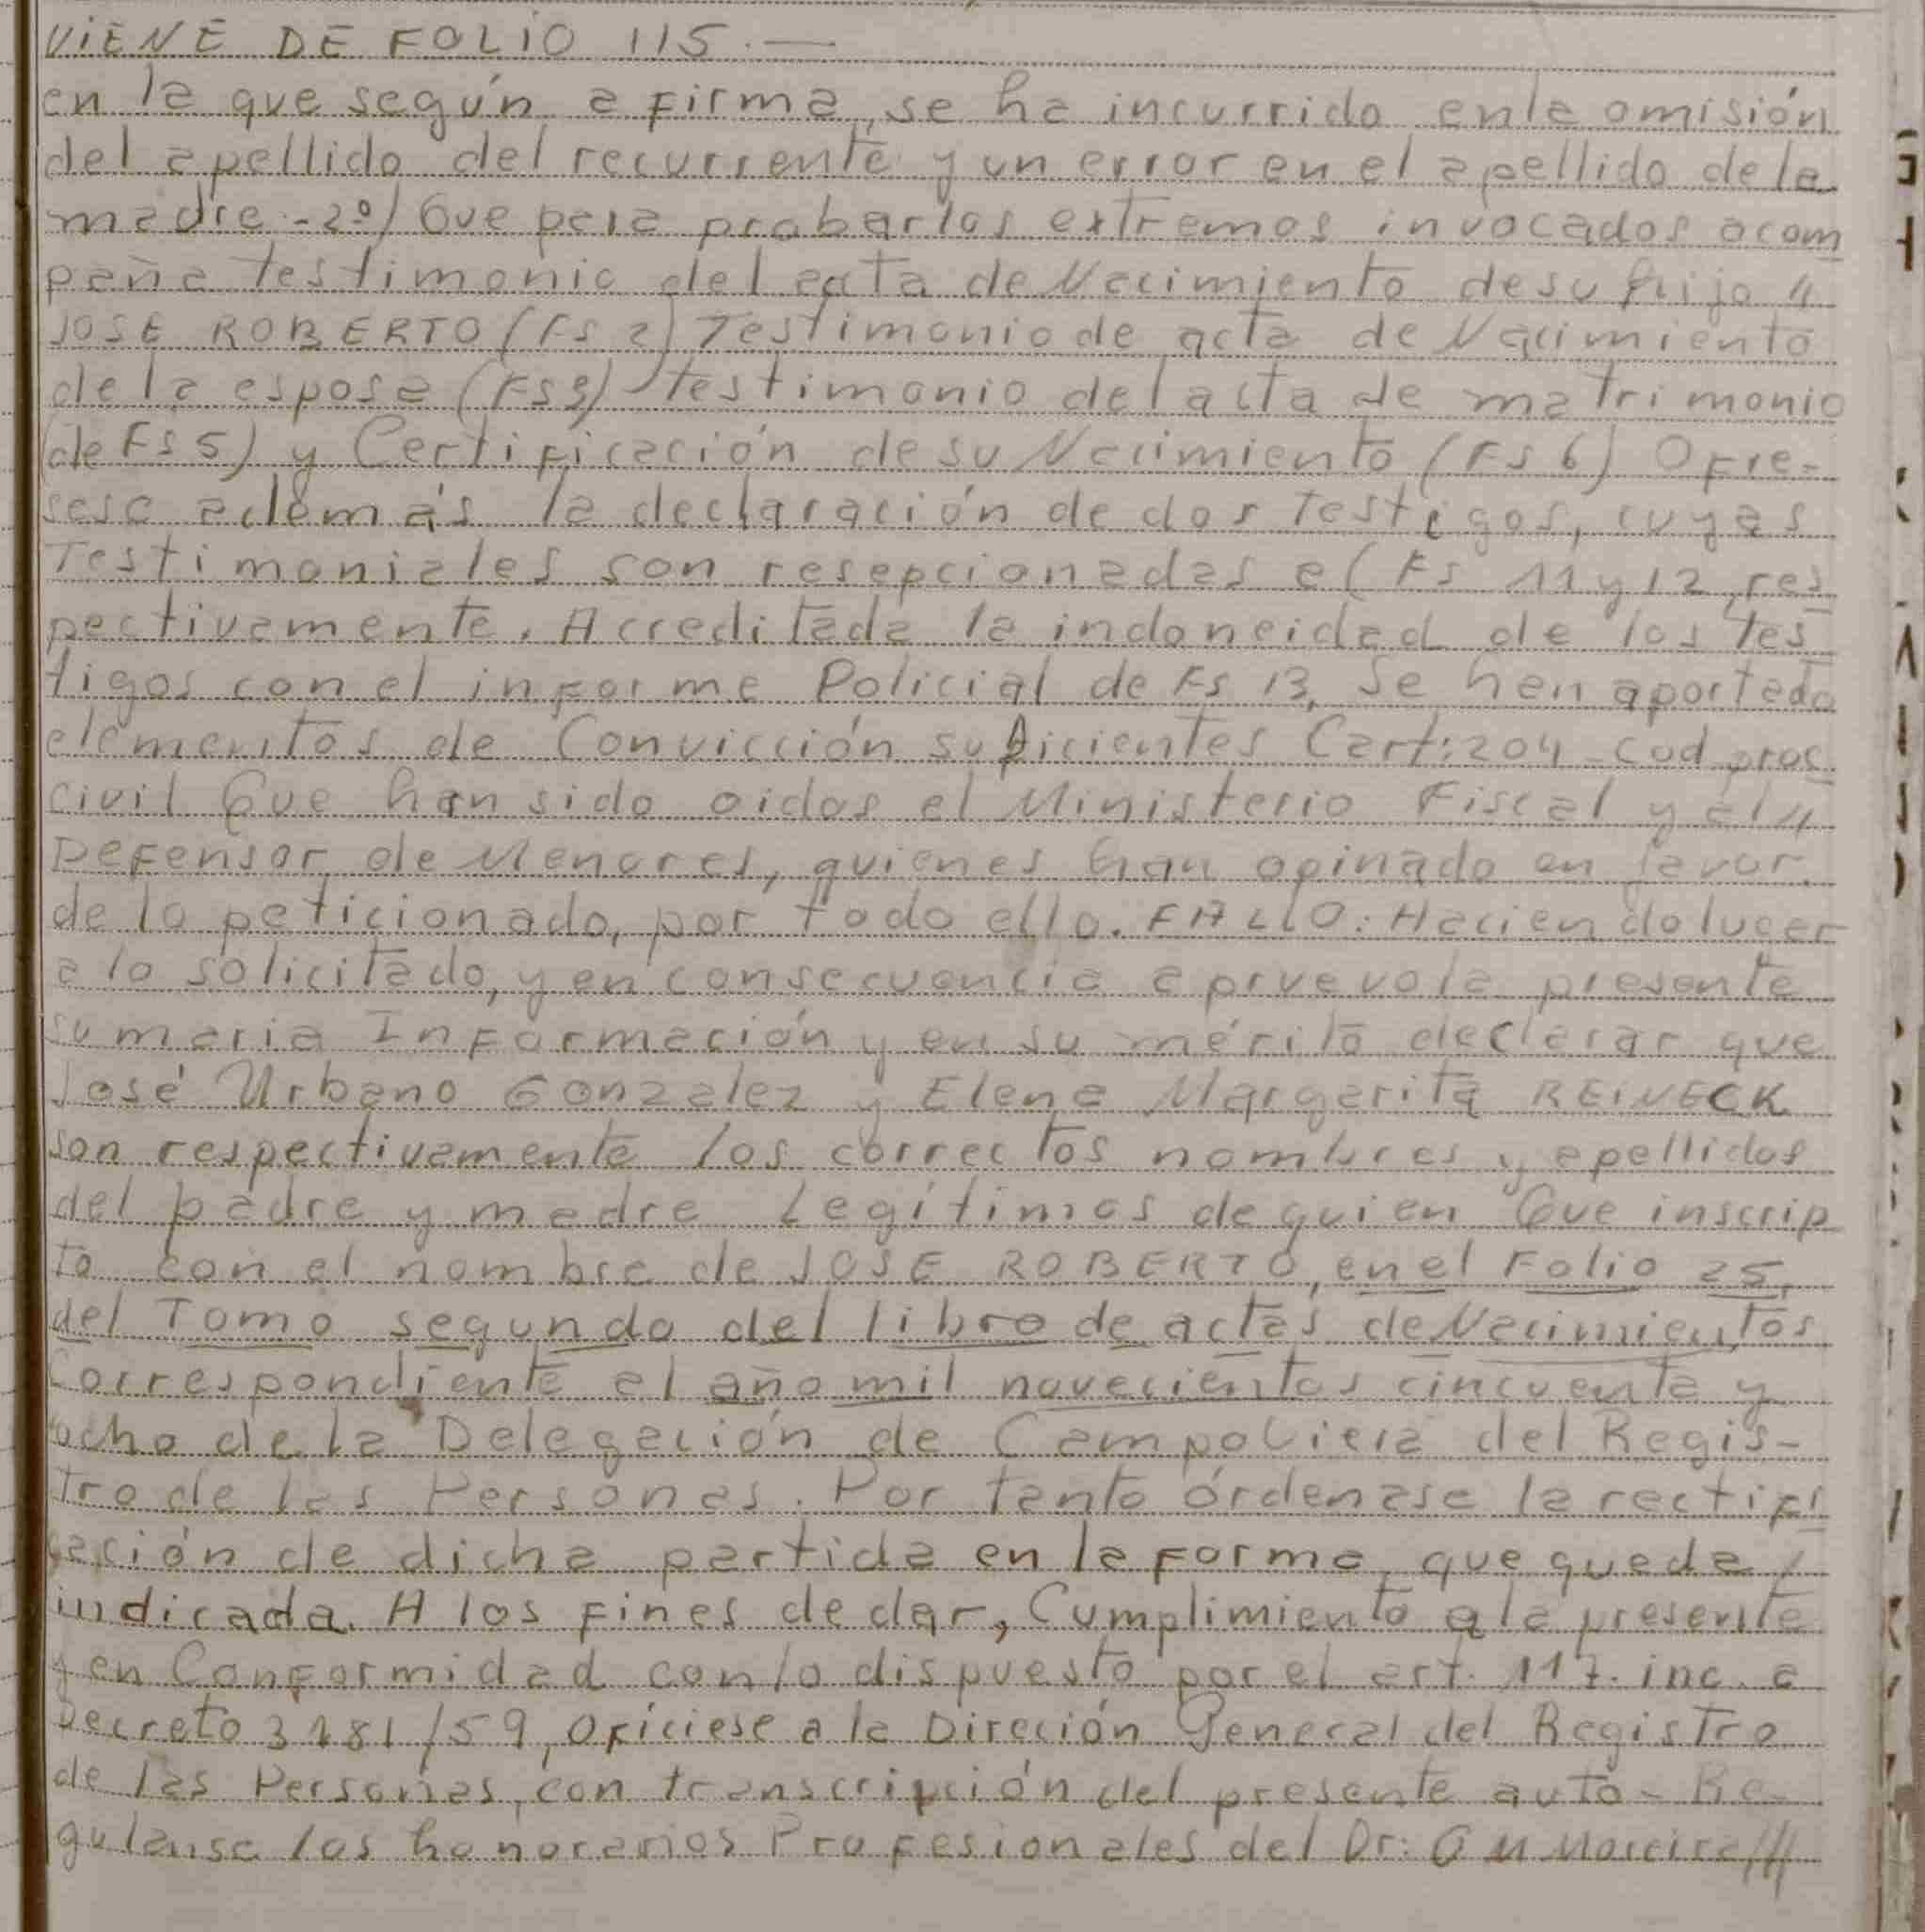 VIENE DE FOLIO 115.—
en la que según afirma, se ha incurrido en la omisión
del apellido del recurrente y un error en el apellido de la
madre.-2º) Que para probar los extremos invocados acom
paña testimonio del acta de Nacimiento de su hijo "
JOSE ROBERTO (FS 2) Testimonio de acta de Nacimiento
de la esposa (FS3) Testimonio del acta de matrimonio
(de FS 5) y Certificación de su Nacimiento (FS 6) Ofre-
sese además la declaración de dos Testigos, cuyas
Testimoniales son resepcionadas a (Fs 11 y 12, res
pectivamente. Acreditada la indoneidad de los Tes
tigos con el informe Policial de Fs 13, Se han aportado
elementos de Convicción suficientes Cart: 204 - Cod proc.
civil Que han sido oidos el Ministerio Fiscal y el "
Defensor de Menores, quienes han opinado en favor.
de lo peticionado, por todo ello. FALLO: Haciendo lugar
a lo solicitado, y en consecuencia apruevo la presente
sumaria Información y en su mérito declarar que
José Urbano Gonzalez y Elena Margarita REINECK
son respectivamente los correctos nombres y apellidos
del padre y madre Legítimos de quien Que inscrip
to con el nombre de JOSE ROBERTO, en el Folio 25,
del Tomo segundo del libro de actas de Nacimientos
Correspondiente al año mil novecientos cincuenta y
ocho de la Delegación de Campo Viera del Regis-
tro de las Personas. Por tanto órdenase la rectifi
cación de dicha partida en la forma que queda /
indicada. A los fines de dar, Cumplimiento a la presente
y en Conformidad con lo dispuesto por el art. 117. inc. a
Decreto 3181/59, oficiese a la Direción General del Registro
de las Personas, con transcripción del presente auto- Re-
gulanse los honorarios Profesionales del Dr: G M Morcira///